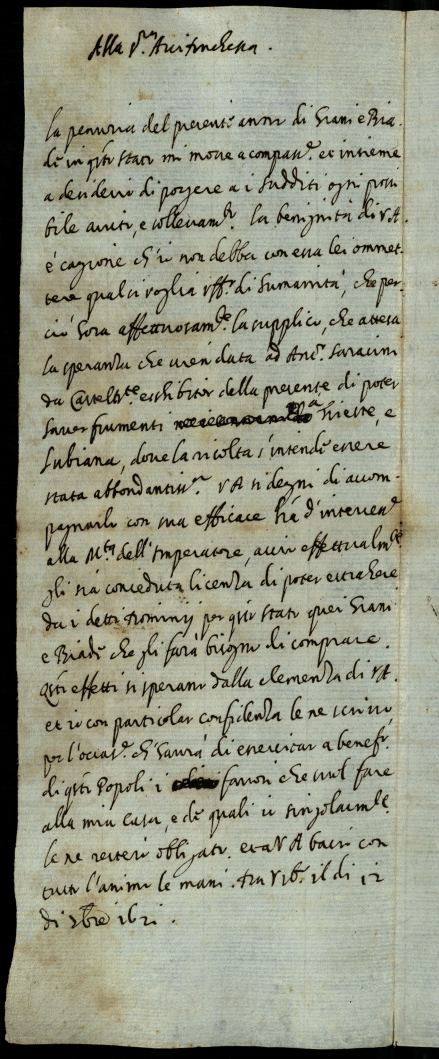 Alla S.ra Arciduchessa.
La penuria del presente anno di Grani e Bia-
de in q.sto stato mi move a compass.e et insieme
a desiderio di porgere a i sudditi ogni possi
bile aiuto, e sollevam.to. La benignità di V A.
è cagione ch'io non debba con essa lei ommet-
tere qual si voglia uff.o di humanità, che per-
ciò hora affettuosam.te la supplico, che attesa
la speranza che vien data ad Ant.o Saracini
da esshibitor della presente di poter
haver frumenti Trieste, e
Lubiana, dove la ricolta s'intende essere
stata abbondantiss.a V A si degni di accom-
pagnarlo con sua efficace d'interces.e
alla M.tà dell'Imperatore, acciò effettualm.te
gli sia conceduta licenza di poter estrahere
da i detti Dominij per q.sto stato quei Grani
e Biade che gli farà bisogno di comprare.
Q.sti effetti si sperano dalla clemenza di V A.
et io con particolar confidenza le ne scrivo
per l'occas.e ch'havrà di esercitar a benef.o
di q.sti Popoli i favori che suol fare
alla mia Casa, e de quali io singolarm.te
le ne resterò obligato. et a V A bacio con
tutto l'animo le mani. Urb.o il di 12
di 1621.